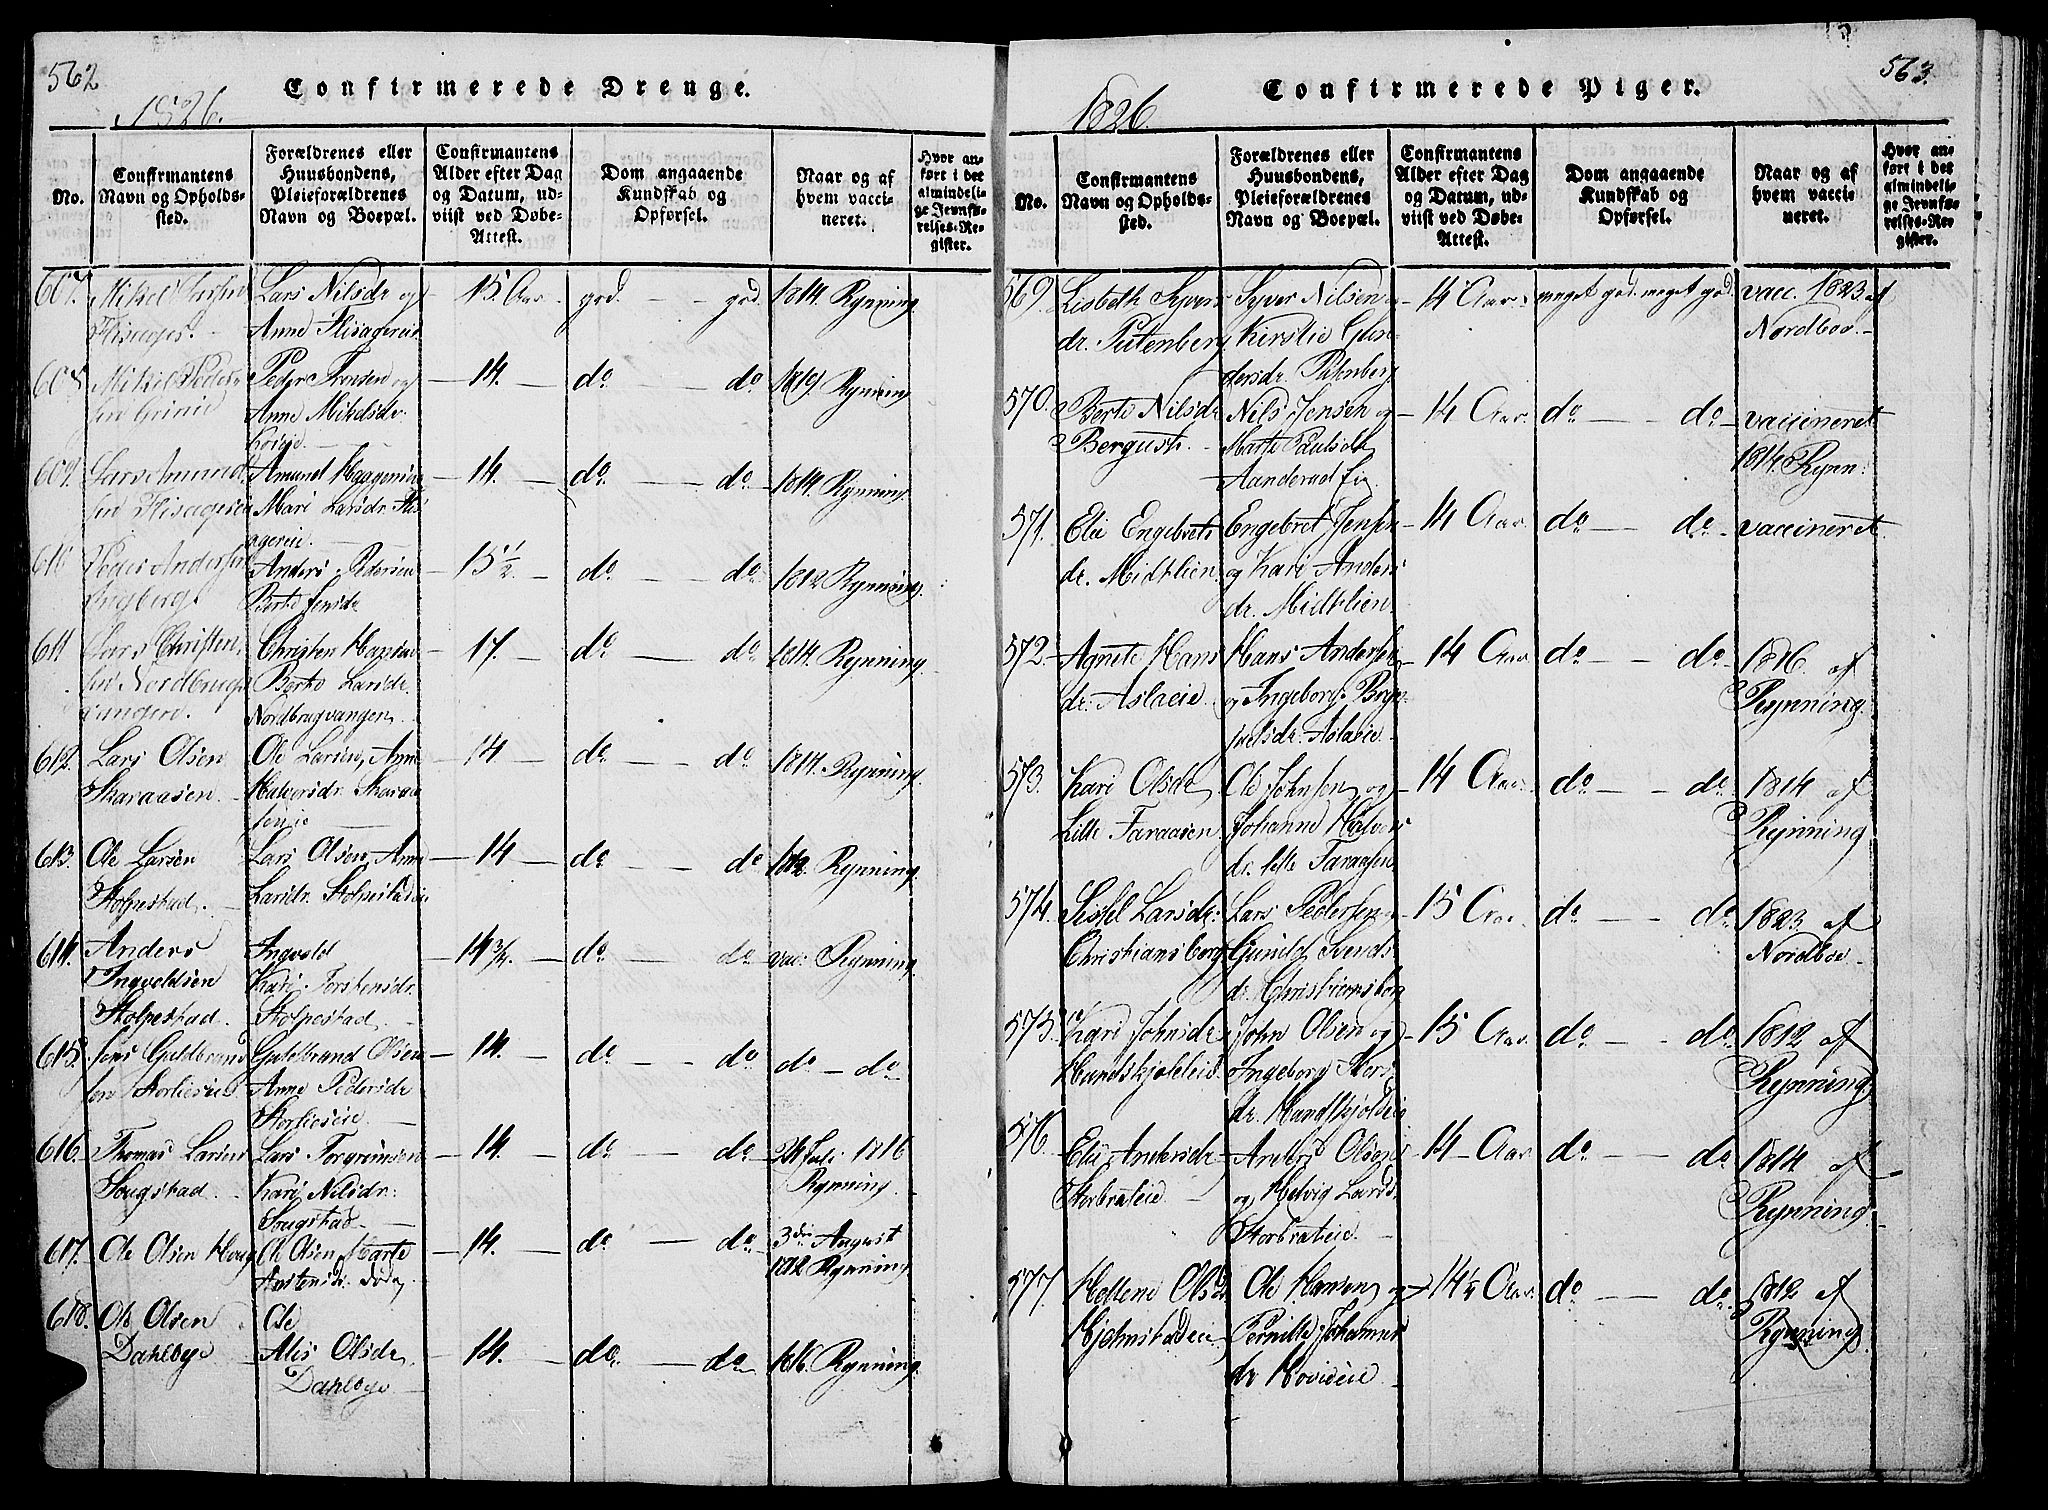 562
Confirmerede Drenge.
1826.
No.
Confirmantens
Navn og Opholds-
sted.
Forældrenes eller
Huusbondens,
Pleieforældrenes
Navn og Boepæl.
Confirmantens
Alder efter Dag
og Datum, ud-
viist ved Døbe-
Attest.
Dom angaaende
Kundskab og
Opførsel.
Naar og af
hvem vacci-
neret.
Hvor an-
ført i det
almindeli-
ge Jevnfø-
relses-Re-
gister.
607.
Lars Nilsdr og
Anne
15. Aar
god. — god.
1814. Rynning
608.
Mikel Peders-
sen Grinie
Peder og
Anne Mikelsdr
14.
do — do
1819. Rynning
609.
Lars Amund-
sen
Amund
Mari Larsdr.
14.
do — do
1814. Rynning
610
Peder Andersen
Anders Pedersen
Berte Jensdr
15 1/2.
do — do
1812 Rynning
611
Lars Christen-
sen Nordbrug-
Christen
Berte Larsdr.
Nordbrugvangen
17.
do — do
1814. Rynning
612.
Lars Olsen
Skaraasen
Ole Larsen, Anne
Halvorsdr. Skaraa-
senie
14
do — do
1814. Rynning
613.
Ole Larsen
Stolpestad.
Lars Olsen, Anne
Larsdr. Stolpestadie
14
do — do
1812. Rynning
614.
Anders
Ingvoldsen
Stolpestad.
Ingvold
Kari Torstensdr.
Stolpestad.
14 3/4.
do — do
vac: Rynning
615.
Jens Guldbrand-
sen Storliesie
Guldbrand Olsen
Anne Pedersdr
Storliesie
14.
do — do
do — do
616.
Thomas Larsen
Sougstad
Lars Torgrimsen
Kari Nilsdr:
Sougstad
14.
do — do
24 Juli 1816
Rynning
617.
Ole Olsen Houg
Ole Olsen, Marte
14.
do — do
3die August
1812 Rynning
618.
Ole Olsen
Dahlbye
Ole
Alis Olsdr
Dahlbye
14.
do — do
1816. Rynning
563.
Confirmerede Piger.
1826.
No.
Confirmantens
Navn og Opholds-
sted.
Forældrenes eller
Huusbondens,
Pleieforældrenes
Navn og Boepæl.
Confirmantens
Alder efter Dag
og Datum, ud-
viist ved Døbe-
Attest.
Dom angaaende
Kundskab og
Opførsel.
Naar og af
hvem vacci-
neret.
Hvor an-
ført i det
almindeli-
ge Jevnfø-
relses-Re-
gister.
569.
Lisbeth Syvers-
dr.
Syver Nilsen og
Kirstie Gun-
dersdr.
14 Aar
meget god. meget god
vacc. 1823 af
Nordboe
570.
Berte Nilsdr
Bergust
Nils Jensen og
Marte Paulsdr
Aanderud
14 Aar
do — do
vaccineret
1814. Rynn:
571.
Elie Engebrets-
dr. Midtlien
Engebret Jensen
og Kari Anders-
dr. Midtlien
14 Aar
do — do
vaccineret
572.
Agnete Hans-
dr. Aslacie
Hans Andersen
og Ingeborg
Aslacie
14 Aar
do — do
1816. af
Rynning
573.
Kari Olsdr
Lille Taraasen
Ole Johnsen og
Johanne Halvors-
dr. lille Taraasen
14 Aar
do — do
1814 af
Rynning
574.
Sissel Larsdr:
Christiansborg
Lars Pedersen og
Gunild Svends-
dr. Christiansborg
15 Aar
do — do
1823 af
Nordboe
575.
Kari Johnsdr
Hundskjoldeie
John Olsen og
Ingeborg
dr. Hundskjoldeie
15 Aar
do — do
1812 af
Rynning
576.
Elie Andersdr
Storbrateie
Anders Olsen
og Helvig Lars-
Storbrateie
14 Aar
do — do
1814 af
Rynning
577.
Hellene Olsdr
Hjelmstadeie
Ole Hansen og
Pernille Johannes-
dr Hovieie
14 1/2 Aar
do — do
1812 af
Rynning